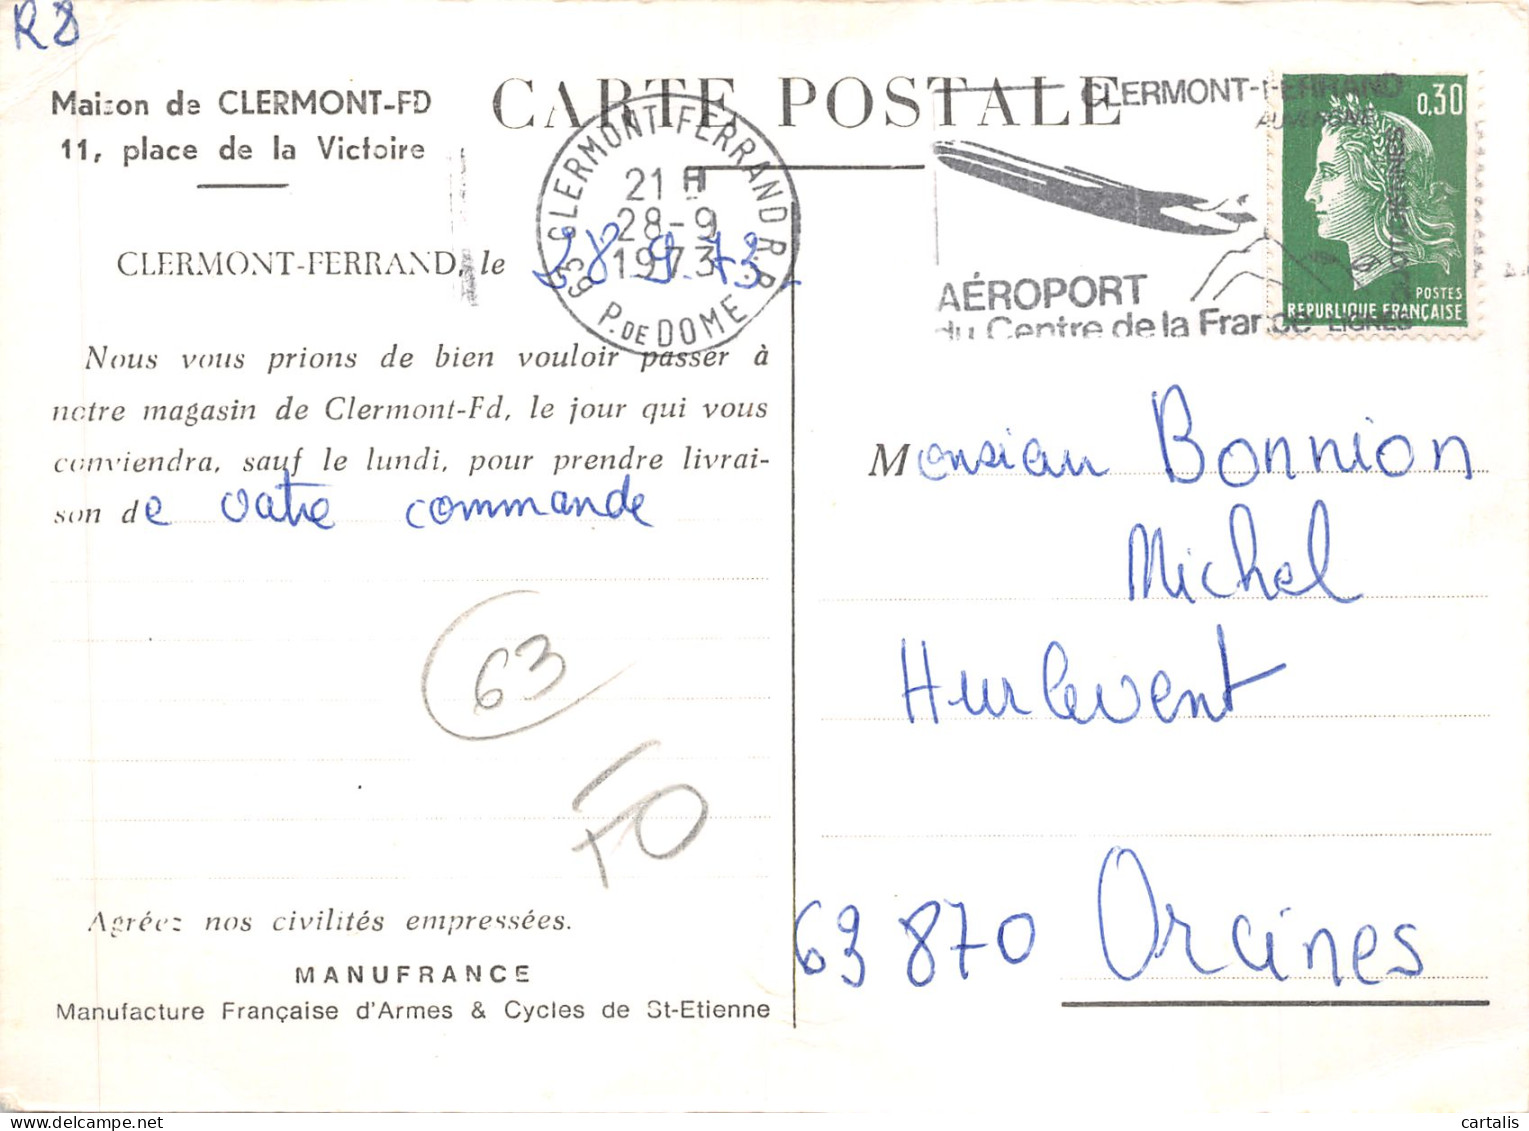 R8
Maison de CLERMONT-FD
11, place de la Victoire
CARTE POSTALE
CLERMONT-FERRAND, le 28.9.73
63 CLERMONT FERRAND R.P.
21 H
28-9
1973
P. DE DOME
CLERMONT-FERRAND
AUVERGNE
AÉROPORT
du Centre de la France
0,30
POSTES
REPUBLIQUE FRANÇAISE
Nous vous prions de bien vouloir passer à
notre magasin de Clermont-Fd, le jour qui vous
conviendra, sauf le lundi, pour prendre livrai-
son de votre commande
63
FO
Agréez nos civilités empressées.
MANUFRANCE
Manufacture Française d'Armes & Cycles de St-Etienne
Monsieur Bonnion
Michel
Hurlevent
63870 Orcines
cartalis